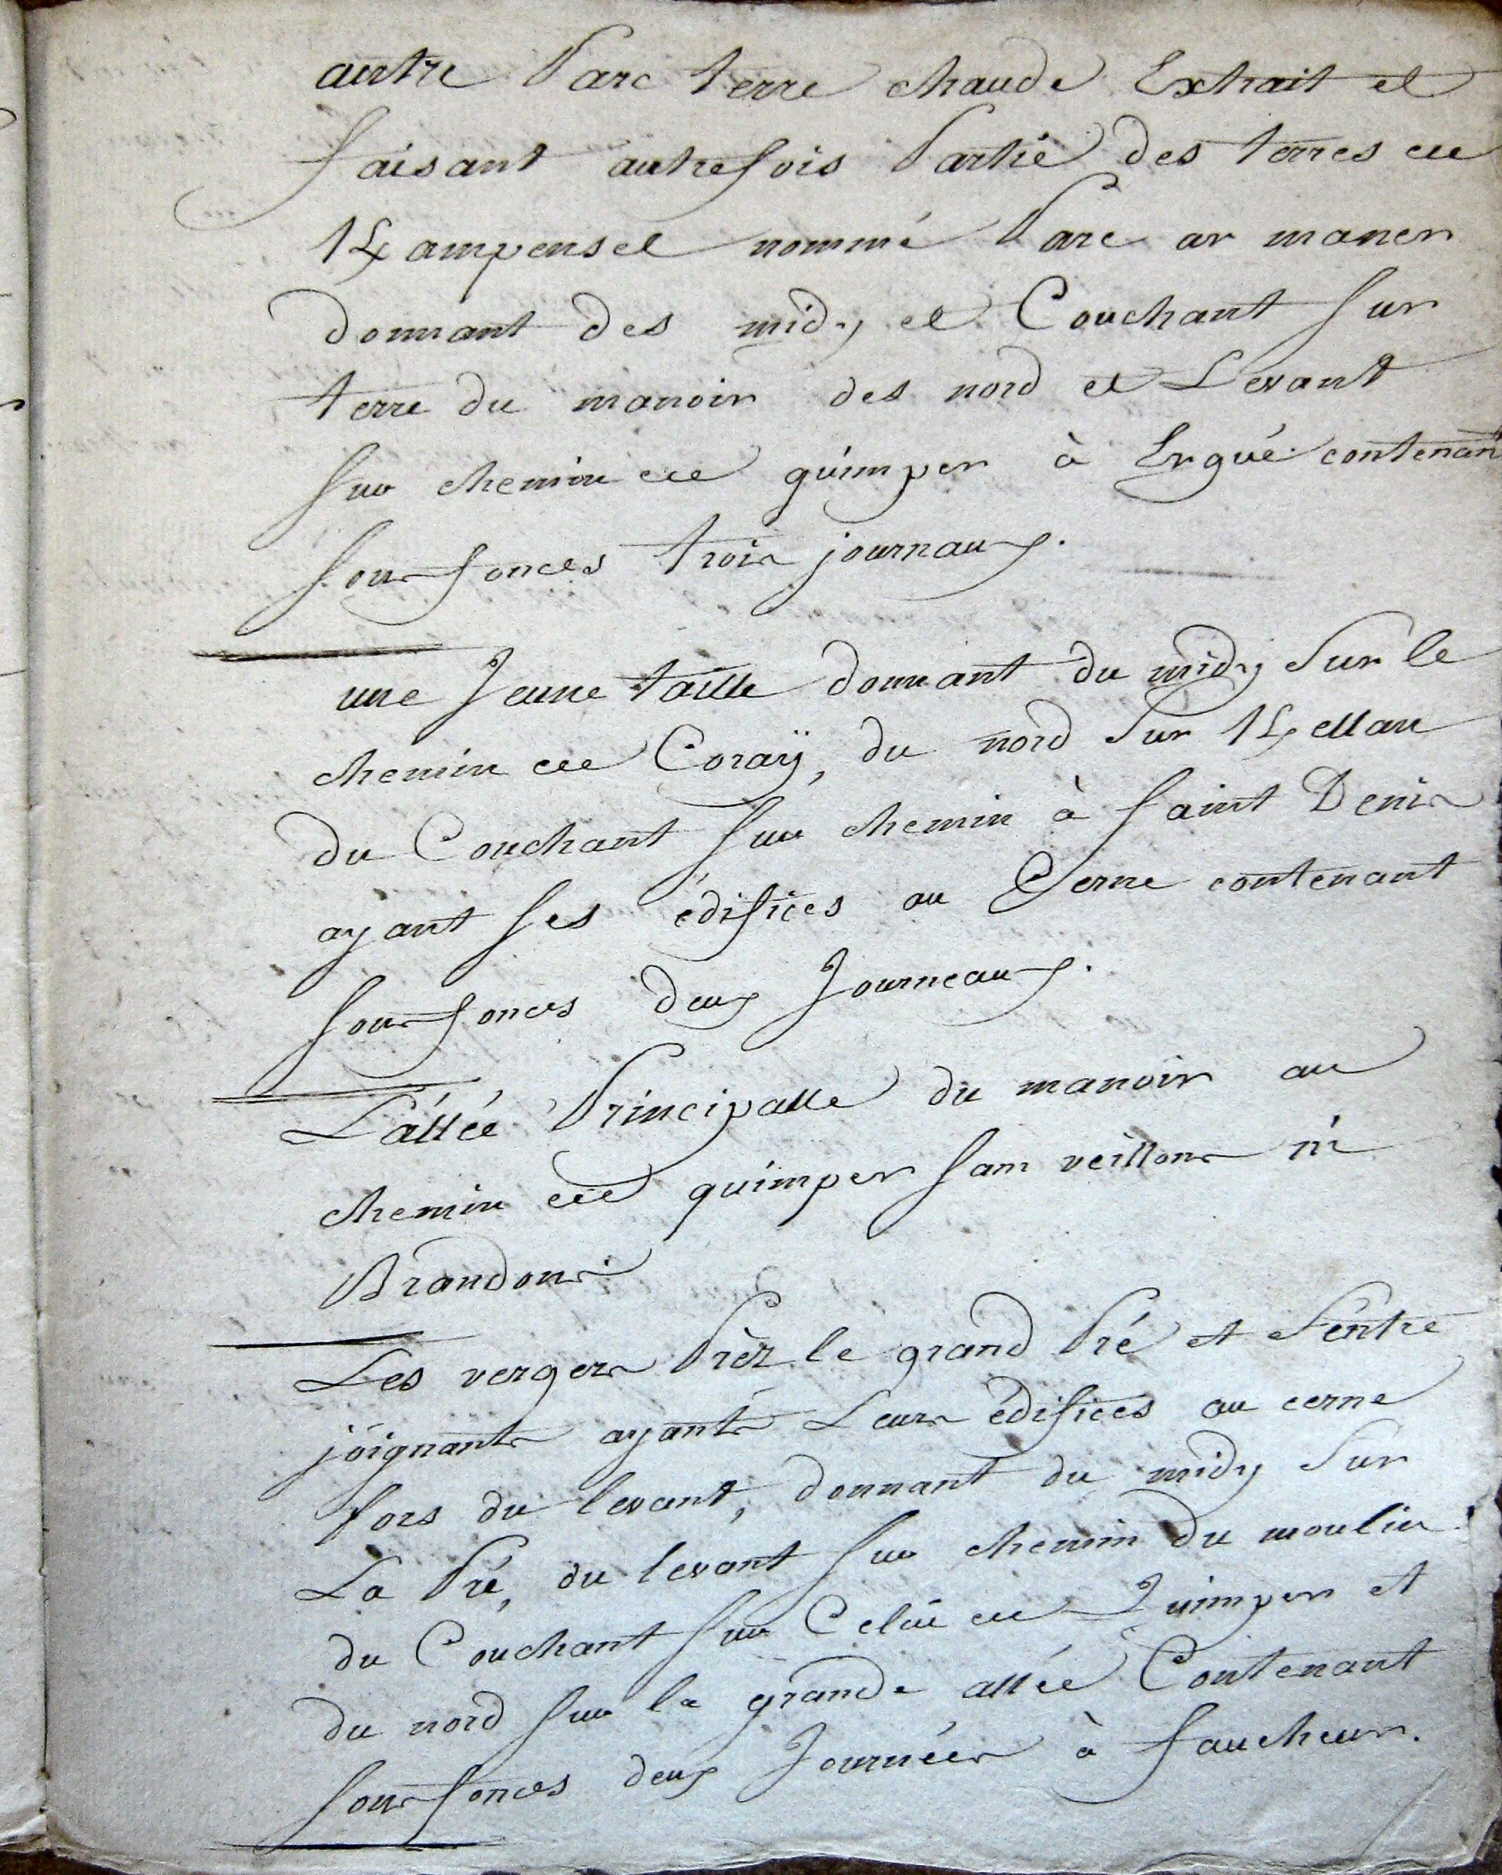 autre Parc terre chaude Extrait et
faisant autrefois Partie des terres de
Kampensel nommé Parc ar maner
donnant des midy et Couchant sur
terre du manoir des nord et Levant
sur chemin de quimper à Ergué contenant
sous fonces trois journaux.
une Jeune taille donnant du midy sur le
chemin de Coraÿ, du nord sur Kellan
du Couchant sur chemin à saint Denis
ayant ses édifices au Cerne contenant
sous fonces deux Journeaux.
L'allée Principalle du manoir au
chemin de quimper sans veillons ni
Brandons.
Les vergers Près le grand Pré et s'entre
joignants ayants Leurs édifices au cerne
fors du levant, donnant du midy sur
La Pré, du levant sur chemin du moulin
du Couchant sur Celui de Quimper et
du nord sur la grande allée Contenant
sous fonces deux Journées à faucheurs.